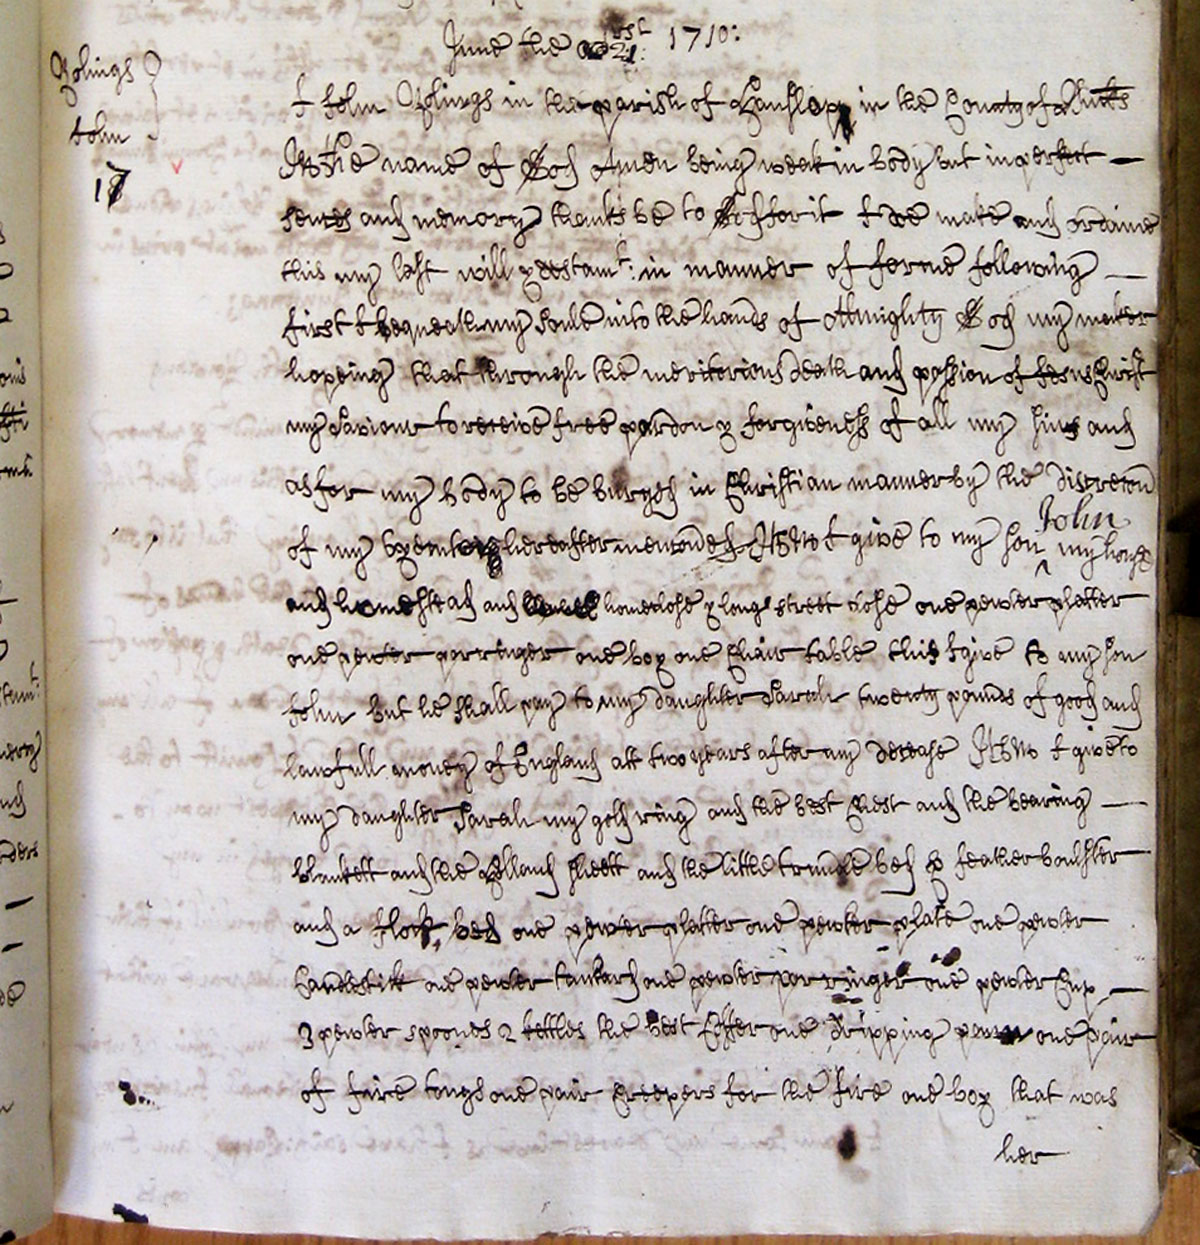 June the 21st 1710:
Holings
John
17
I John Holings in the parish of Hanslop in the County of Bucks
In the name of God Amen being weak in body but in perfect
sences and memory thanks be to God for it I doe make and ordaine
this my last will & testamt: in manner of forme following
first I bequeath my Soule into the hands of Almighty God my maker
hopeing that through the meritorious death and passion of Jesus Christ
my Saviour to receive free pardon & forgiveness of all my sins and
as for my body to be buryed in Christian manner by the discrecon
John
of my hereafter menconed Item I give to my son ^ my house
and homestead and homeclose & longe street close one pewter platter
one pewter porringer one box one Chair table this I give to my son
John but he shall pay to my daughter Sarah twenty pounds of good and
lawfull money of England att two years after my decease Item I give to
my daughter Sarah my gold ring and the best Chest and the bearing
blankett and the Holland sheett and the little trundle bed & feather boulster
and a flock bed one pewter platter one pewter plate one pewter
Candlestik one pewter tankard one pewter porringer one pewter Cup
3 pewter spoones 2 kettles the best Coffer one dripping pann one pair
of fire tongs one pair Creepers for the fire one box that was
her